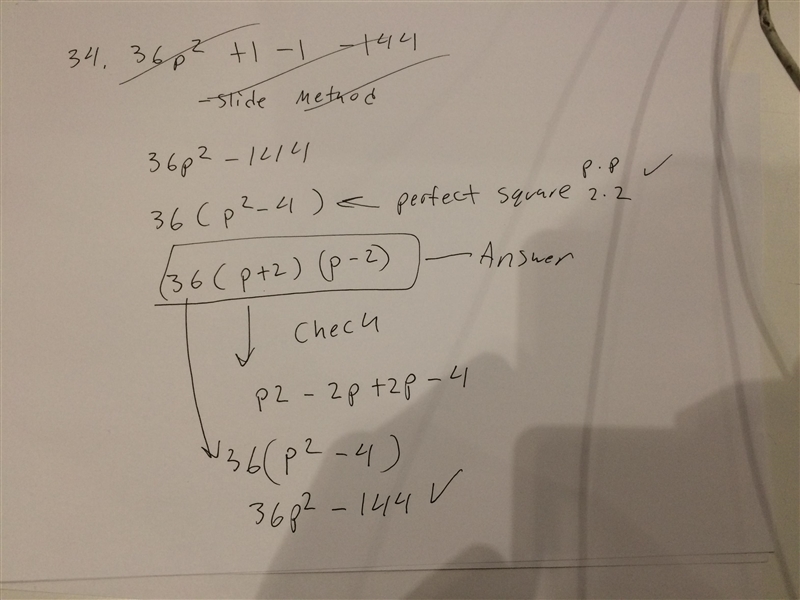 34. 36p² +1 -1 -144
-slide Method
36p² - 144
36(p²-4) ← perfect square p.p ✓
2.2
36(p+2)(p-2) — Answer
Check
p2 - 2p + 2p - 4
36(p² - 4)
36p² - 144 ✓